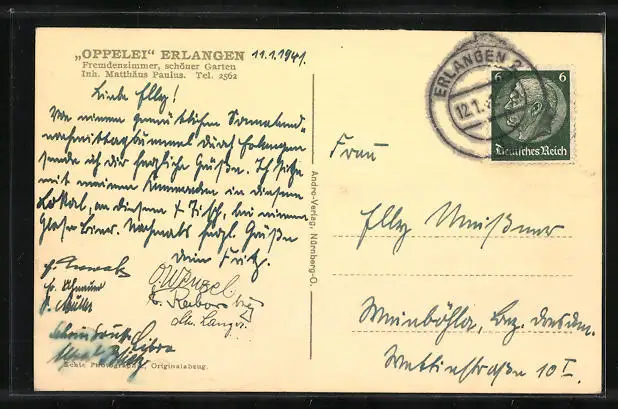 „OPPELEI“ ERLANGEN
Fremdenzimmer, schöner Garten
Inh. Matthäus Paulus. Tel. 2562
11.1.1941.
Liebe Elly!
Von einem gemütlichen Sonnabend-
nachmittagsbummel durch Erlangen
sende ich Dir herzliche Grüße. Ich sitze
mit meinen Kameraden in diesem
Lokal, an diesem x Tisch, bei einem
Glase Bier. Nochmals herzl. Grüße
Dein Fritz.
Wenzel
Müller
Echte Photographie, Originalabzug.
Andro-Verlag, Nürnberg-O.
ERLANGEN 2
12.1.
6 6
Deutsches Reich
Frau
Elly Meißner
Weinböhla, Bez. Dresden.
Wettinstraße 10 I.